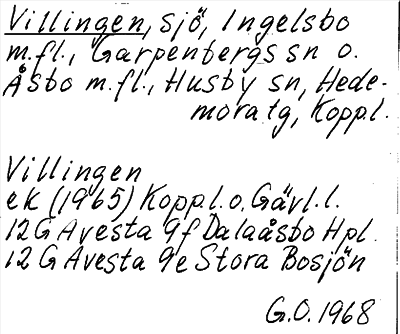 Villingen, sjö, Ingelsbo
m.fl., Garpenbergs sn o.
Åsbo m.fl., Husby sn, Hede-
mora tg, Koppl.
Villingen
ek (1965) Koppl. o. Gävl. l.
12 G Avesta 9f Dalaåsbo Hpl.
12 G Avesta 9e Stora Bosjön
G.O. 1968